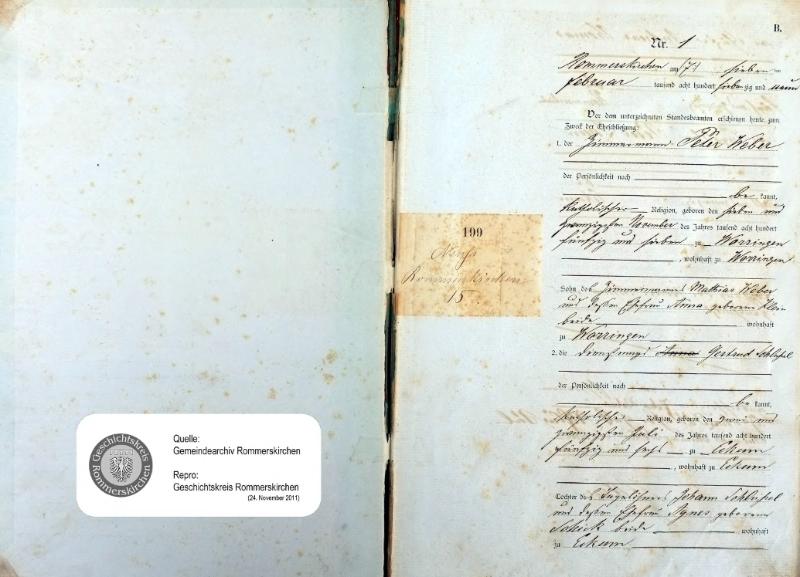 Geschichtskreis
Rommerskirchen
Quelle:
Gemeindearchiv Rommerskirchen
Repro:
Geschichtskreis Rommerskirchen
(24. November 2011)
199
Rommerskirchen
15
B.
Nr. 1
Rommerskirchen am sieben
Februar tausend acht hundert siebenzig und neun
Vor dem unterzeichneten Standesbeamten erschienen heute zum
Zweck der Eheschließung:
1. der Zimmermann Peter Weber
der Persönlichkeit nach
be kannt,
katholischer Religion, geboren den sieben und
zwanzigsten November des Jahres tausend acht hundert
fünfzig und sieben zu Worringen
, wohnhaft zu Worringen
Sohn des Zimmermanns Mathias Weber
und dessen Ehefrau Anna geborene Klein
beide wohnhaft
zu Worringen
2. die Dienstmagd Anna Gertrud Schleifel
der Persönlichkeit nach
be kannt,
katholischer Religion, geboren den und
zwanzigsten Juli des Jahres tausend acht hundert
fünfzig und sechs zu Eckum
, wohnhaft zu Eckum
Tochter des Tagelöhners Johann
und dessen Ehefrau Agnes geborene
Schick beide wohnhaft
zu Eckum